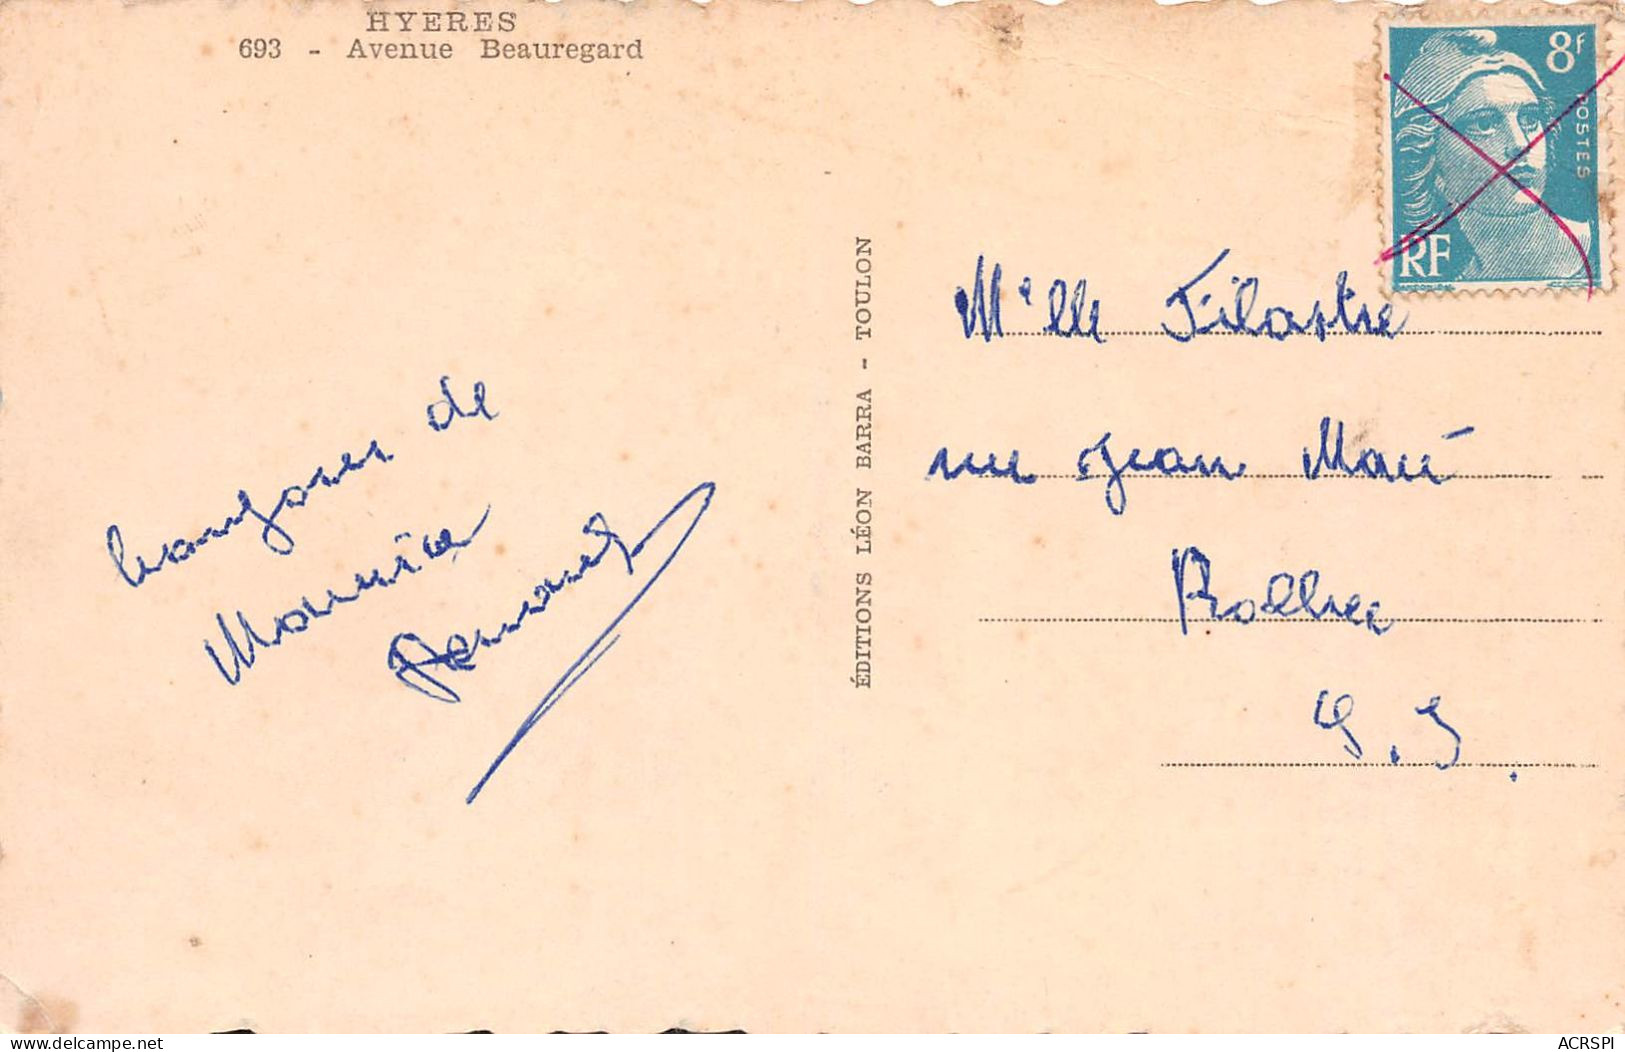 HYERES
693 - Avenue Beauregard
8f
POSTES
RF
ÉDITIONS LÉON BARRA - TOULON
de
Maurice
M'lle Filastre
rue Jean Macé
Bolbec
S. I.
www.delcampe.net
ACRSPI